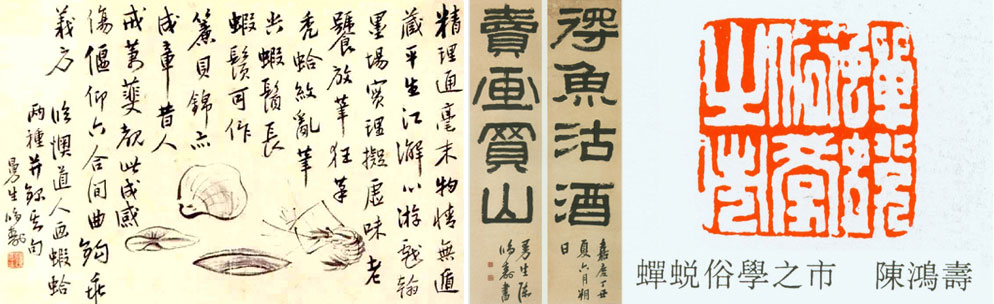 精理通毫末物情無遁
藏平生江澥心游戲翰
墨場實理擬虛味老
饕放筆
禿蛤紋亂筆
出蝦鬚長
蝦鬚可作
簾貝錦亦
成章昔人
戒萋斐觀此成感
傷偃仰六合間曲鉤乖
義方
臨懊道人画蝦蛤
兩種并錄其句
曼生鴻壽
得魚沽酒
嘉慶丁丑
夏六月朔
日
賣画買山
曼生陳
鴻壽書
蟬蛻
俗學
之市
蟬蜕俗學之市 陳鴻壽